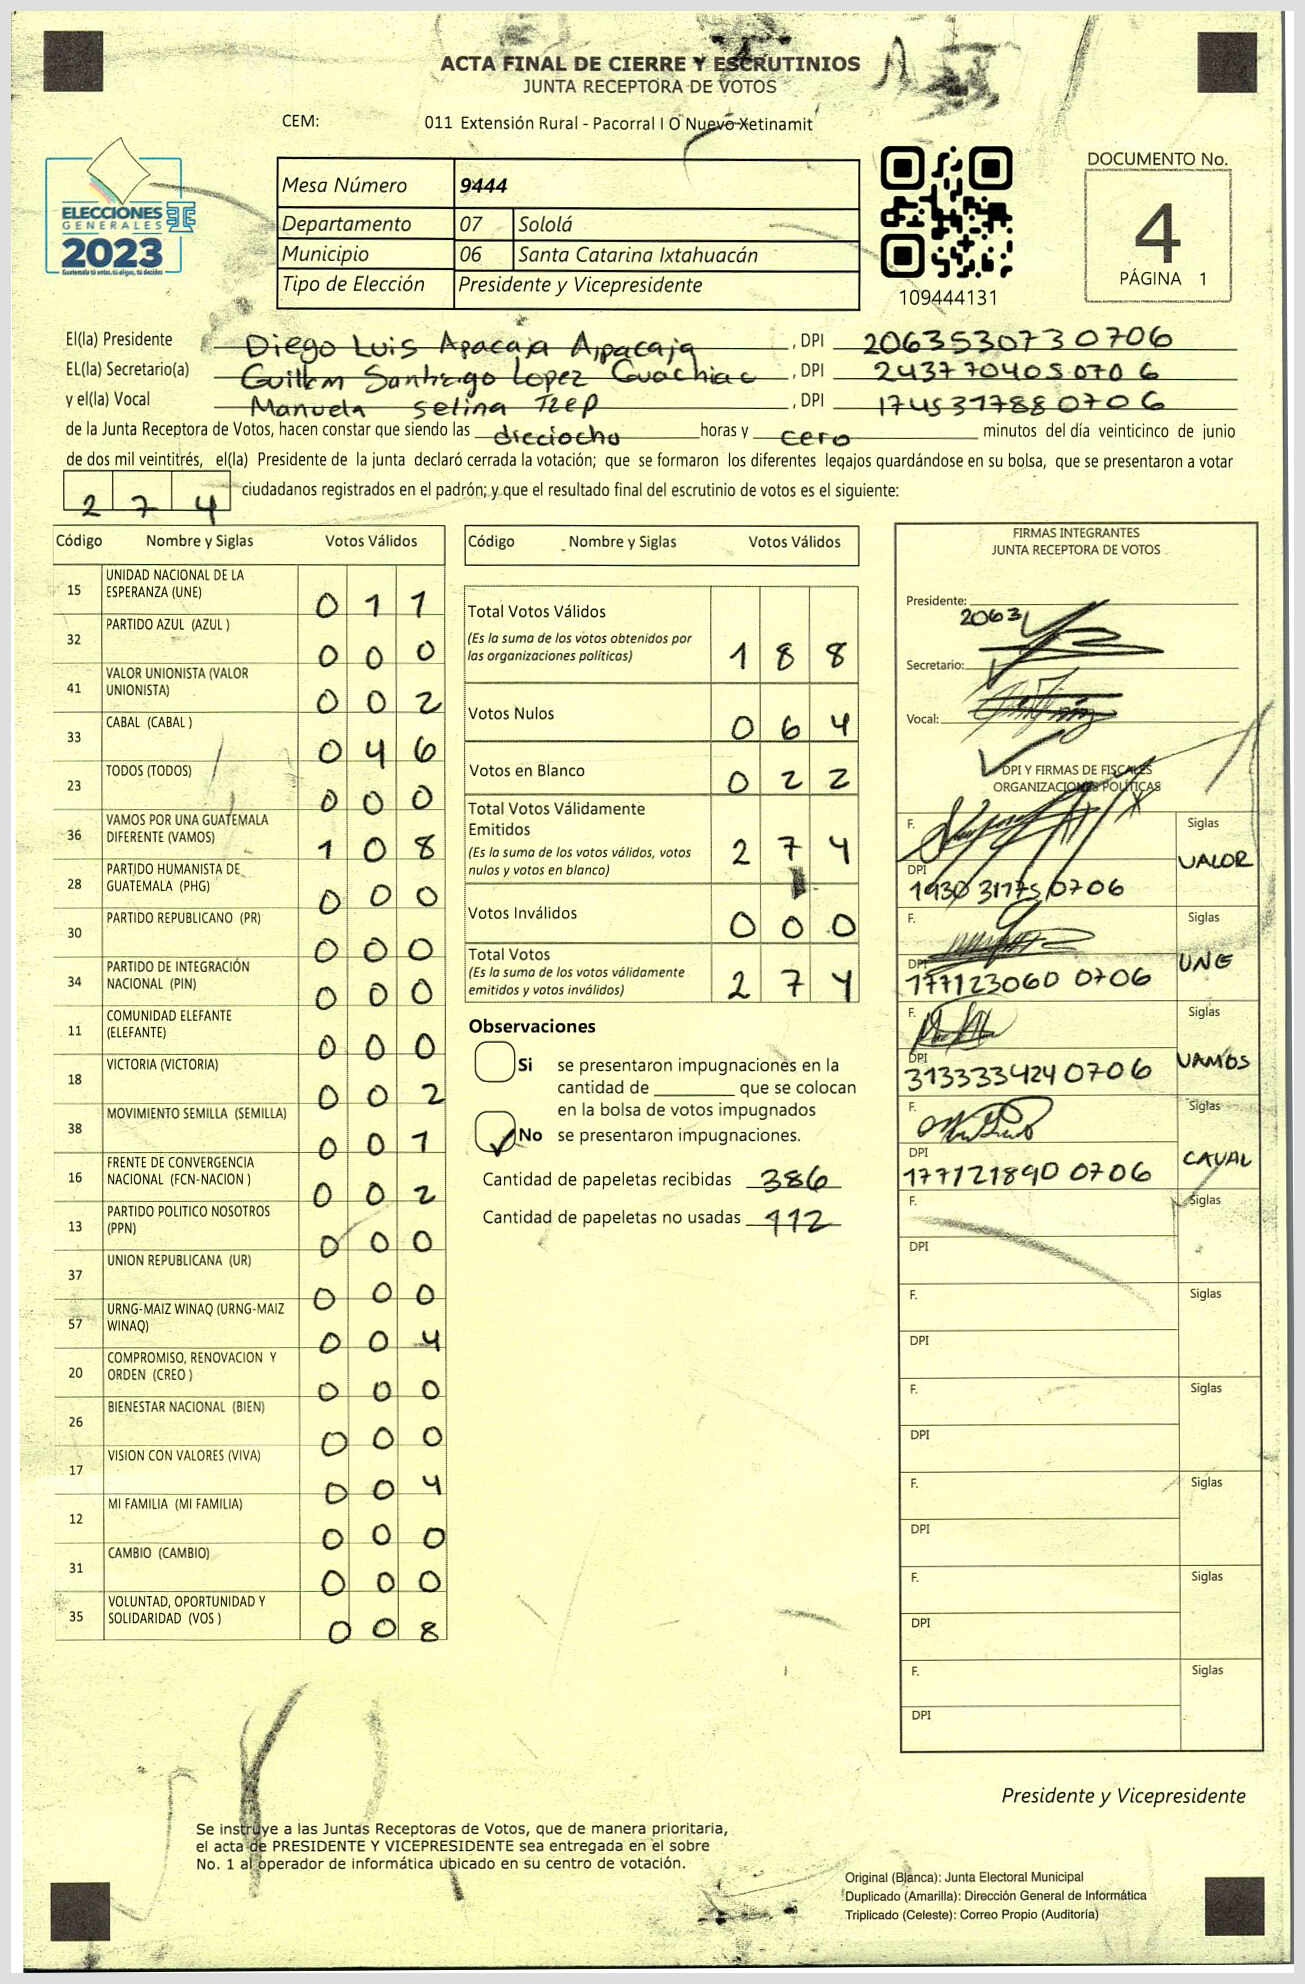 ACTA FINAL DE CIERRE Y ESCRUTINIOS
JUNTA RECEPTORA DE VOTOS
CEM: 011 Extensión Rural - Pacorral I O Nuevo Xetinamit
ELECCIONES
GENERALES
2023
Guatemala tú votas, tú eliges, tú decides
Mesa Número 9444
Departamento 07 Sololá
Municipio 06 Santa Catarina Ixtahuacán
Tipo de Elección Presidente y Vicepresidente
109444131
DOCUMENTO No.
4
PÁGINA 1
El(la) Presidente Diego Luis Apacaja Aipacaja, DPI 2063530730706
EL(la) Secretario(a) Guillem Santiago Lopez Guachiac, DPI 2437704050706
y el(la) Vocal Manuela Selina Tzep, DPI 1745317880706
de la Junta Receptora de Votos, hacen constar que siendo las dieciocho horas y cero minutos del día veinticinco de junio
de dos mil veintitrés, el(la) Presidente de la junta declaró cerrada la votación; que se formaron los diferentes legajos guardándose en su bolsa, que se presentaron a votar
274 ciudadanos registrados en el padrón; y que el resultado final del escrutinio de votos es el siguiente:
Código Nombre y Siglas Votos Válidos
15 UNIDAD NACIONAL DE LA ESPERANZA (UNE) 011
32 PARTIDO AZUL (AZUL ) 000
41 VALOR UNIONISTA (VALOR UNIONISTA) 002
33 CABAL (CABAL ) 046
23 TODOS (TODOS) 000
36 VAMOS POR UNA GUATEMALA DIFERENTE (VAMOS) 108
28 PARTIDO HUMANISTA DE GUATEMALA (PHG) 000
30 PARTIDO REPUBLICANO (PR) 000
34 PARTIDO DE INTEGRACIÓN NACIONAL (PIN) 000
11 COMUNIDAD ELEFANTE (ELEFANTE) 000
18 VICTORIA (VICTORIA) 002
38 MOVIMIENTO SEMILLA (SEMILLA) 001
16 FRENTE DE CONVERGENCIA NACIONAL (FCN-NACION ) 002
13 PARTIDO POLITICO NOSOTROS (PPN) 000
37 UNION REPUBLICANA (UR) 000
57 URNG-MAIZ WINAQ (URNG-MAIZ WINAQ) 004
20 COMPROMISO, RENOVACION Y ORDEN (CREO ) 000
26 BIENESTAR NACIONAL (BIEN) 000
17 VISION CON VALORES (VIVA) 004
12 MI FAMILIA (MI FAMILIA) 000
31 CAMBIO (CAMBIO) 000
35 VOLUNTAD, OPORTUNIDAD Y SOLIDARIDAD (VOS ) 008
Código Nombre y Siglas Votos Válidos
Total Votos Válidos 188
(Es la suma de los votos obtenidos por
las organizaciones políticas)
Votos Nulos 064
Votos en Blanco 022
Total Votos Válidamente
Emitidos 274
(Es la suma de los votos válidos, votos
nulos y votos en blanco)
Votos Inválidos 000
Total Votos 274
(Es la suma de los votos válidamente
emitidos y votos inválidos)
Observaciones
Si se presentaron impugnaciones en la
cantidad de ________ que se colocan
en la bolsa de votos impugnados
No se presentaron impugnaciones.
Cantidad de papeletas recibidas 386
Cantidad de papeletas no usadas 112
FIRMAS INTEGRANTES
JUNTA RECEPTORA DE VOTOS
Presidente:
2063
Secretario:
Vocal:
DPI Y FIRMAS DE FISCALES
ORGANIZACIONES POLÍTICAS
F. Siglas
VALOR
DPI
1930311750706
F. Siglas
UNE
DPI
1771230600706
F. Siglas
VAMOS
DPI
3133334240706
F. Siglas
CAVAL
DPI
1771218900706
F. Siglas
DPI
F. Siglas
DPI
F. Siglas
DPI
F. Siglas
DPI
F. Siglas
DPI
F. Siglas
DPI
Presidente y Vicepresidente
Se instruye a las Juntas Receptoras de Votos, que de manera prioritaria,
el acta de PRESIDENTE Y VICEPRESIDENTE sea entregada en el sobre
No. 1 al operador de informática ubicado en su centro de votación.
Original (Blanca): Junta Electoral Municipal
Duplicado (Amarilla): Dirección General de Informática
Triplicado (Celeste): Correo Propio (Auditoría)